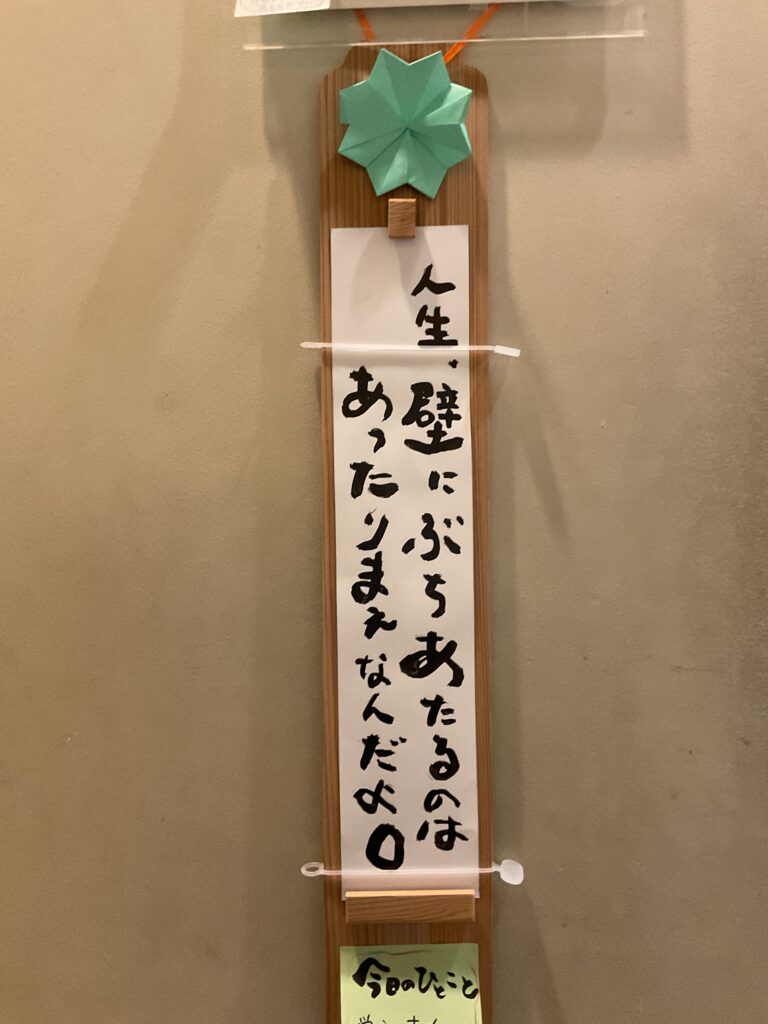 人生、壁にぶちあたるのは
あったりまえなんだよ。
今日のひとこと